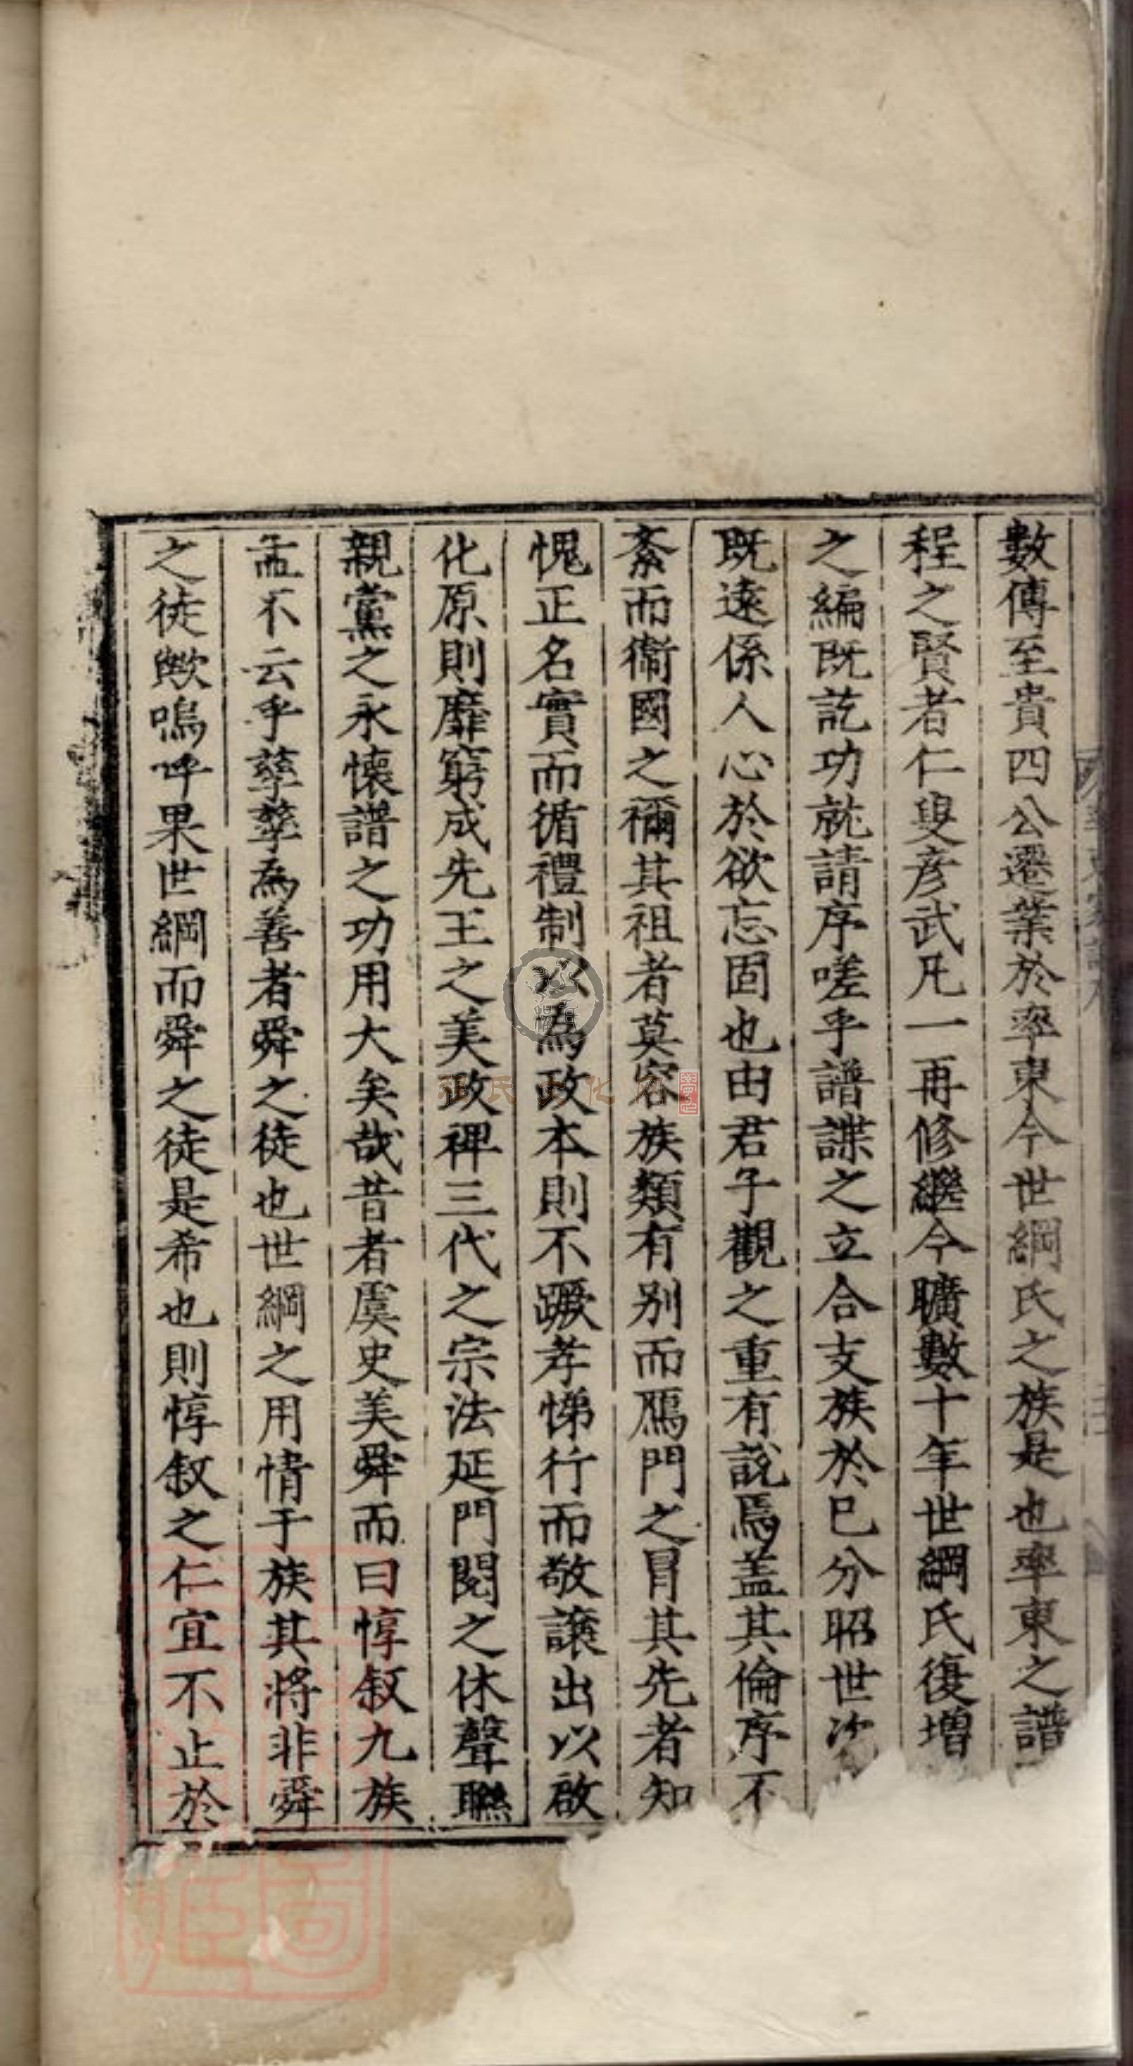 數傳至貴四公遷業於率東今世綱氏之族是也率東之譜
程之賢者仁叟彥武凡一再修繼今曠數十年世綱氏復增
之編既訖功就請序嗟乎譜諜之立合支族於巳分昭世次
既遠係人心於欲忘固也由君子觀之重有說焉蓋其倫序不
紊而衞國之禰其祖者莫容族類有别而鴈門之冐其先者知
愧正名實而循禮制以為政本則不蹶孝悌行而敬讓出以啟
化原則靡窮成先王之美政裨三代之宗法延門閥之休聲聯
親黨之永懷譜之功用大矣哉昔者虞史美舜而曰惇敘九族
孟不云乎孳孳為善者舜之徒也世綱之用情于族其將非舜
之徒歟嗚呼果世綱而舜之徒是希也則惇敘之仁宜不止於